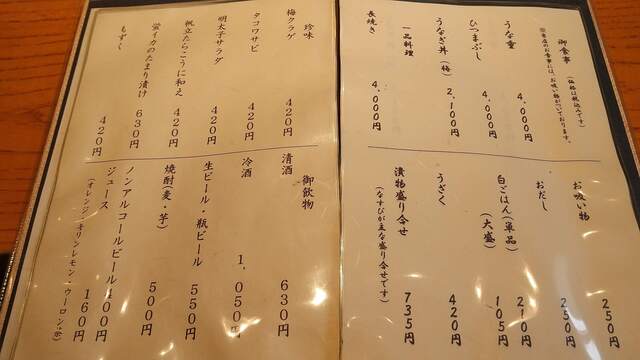 御食事 (価格は税込みです)
※当店のお食事には、お吸い物がついております。
うな重 4,000円
ひつまぶし 4,000円
うなぎ丼(梅) 2,100円
一品料理
長焼き 4,000円
お吸い物 250円
おだし 250円
白ごはん(単品) 210円
(大盛) 105円
うざく 420円
漬物盛り合せ 735円
(なすびが主な盛り合せです)
珍味
梅クラゲ 420円
タコワサビ 420円
明太子サラダ 420円
帆立たらこうに和え 420円
蛍イカのたまり漬け 630円
もずく 420円
御飲物
清酒 630円
冷酒 1,050円
生ビール・瓶ビール 550円
焼酎(麦・芋) 500円
ノンアルコールビール 400円
ジュース 160円
(オレンジ・キリンレモン・ウーロン茶)